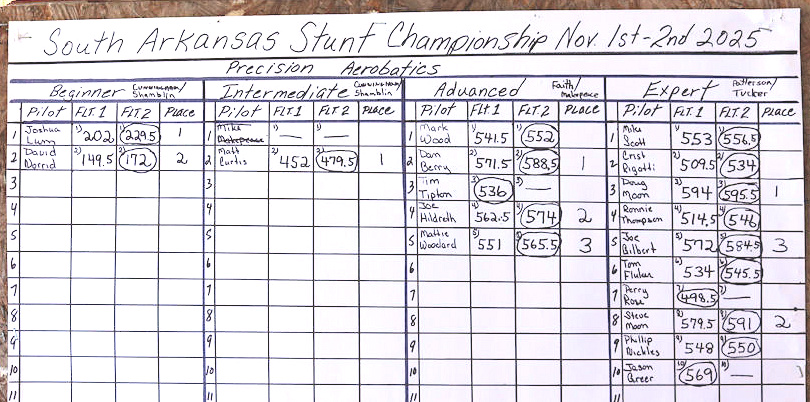 South Arkansas Stunt Championship Nov. 1st-2nd 2025
Precision Aerobatics
Beginner Cunningham/Shamblin Intermediate Cunningham/Shamblin Advanced Faith/Makepeace Expert Patterson/Tucker
Pilot FLT.1 FLT.2 PLACE Pilot FLT.1 FLT.2 PLACE Pilot FLT.1 FLT.2 PLACE Pilot FLT.1 FLT.2 PLACE
1 Joshua Lum 1) 202 1) 229.5 1 1 Mike Makepeace 1) — 1) — 1 Mark Wood 1) 541.5 1) 552 1 Mike Scott 1) 553 1) 556.5
2 David Norrid 2) 149.5 2) 172 2 2 Matt Curtis 2) 452 2) 479.5 1 2 Dan Berry 2) 571.5 2) 588.5 1 2 Crist Rigotti 2) 509.5 2) 534
3 3 3 Tim Tipton 3) 536 3) — 3 Doug Moon 3) 594 3) 595.5 1
4 4 4 Joe Hildreth 4) 562.5 4) 574 2 4 Ronnie Thompson 4) 514.5 4) 546
5 5 5 Mattie Woodard 5) 551 5) 565.5 3 5 Joe Gilbert 5) 572 5) 584.5 3
6 6 6 6 Tom Fluker 6) 534 6) 545.5
7 7 7 7 Perry Rose 7) 498.5 7) —
8 8 8 8 Steve Moon 8) 579.5 8) 591 2
9 9 9 9 Phillip Nickles 9) 548 9) 550
10 10 10 10 Jason Greer 10) 569 10) —
11 11 11 11